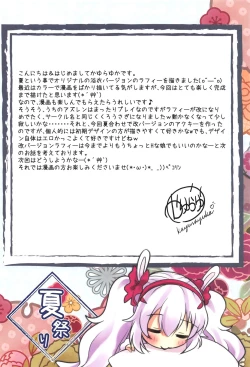 こんにちは&はじめましてかゆらゆかです。
夏という事でオリジナルの浴衣バージョンのラフィーを描きました(o´―`o)
最近はカラーで漫画ばかり描いてる気がしますが、今回はとても楽しく完成
まで描けたと思います(*´艸`)
なので、漫画も楽しんでもらえたらうれしいです♪
そうそう、うちのアズレンはまったりプレイなのですがラフィーが改になり
めでたく、サークル名と同じくうろうさぎになりましたw動かなくなって少し
寂しいかな・・・・・・・・それと、今回夏合わせで改バージョンのアクキーを作った
のですが、個人的には初期デザインの方が描きやすくて好きかなwでも、デザイ
ン自体はエロかっこよくて好きですけどねw
改バージョンラフィーは今までよりもうちょっとH な娘でもいいのかなーと次
のお話を考えております。
次回はどうしようかなー(*´艸`)
それでは漫画の方お楽しみくださいませ(*・ω・)*_ _))ﾍﾟｺﾘﾝ
夏祭り